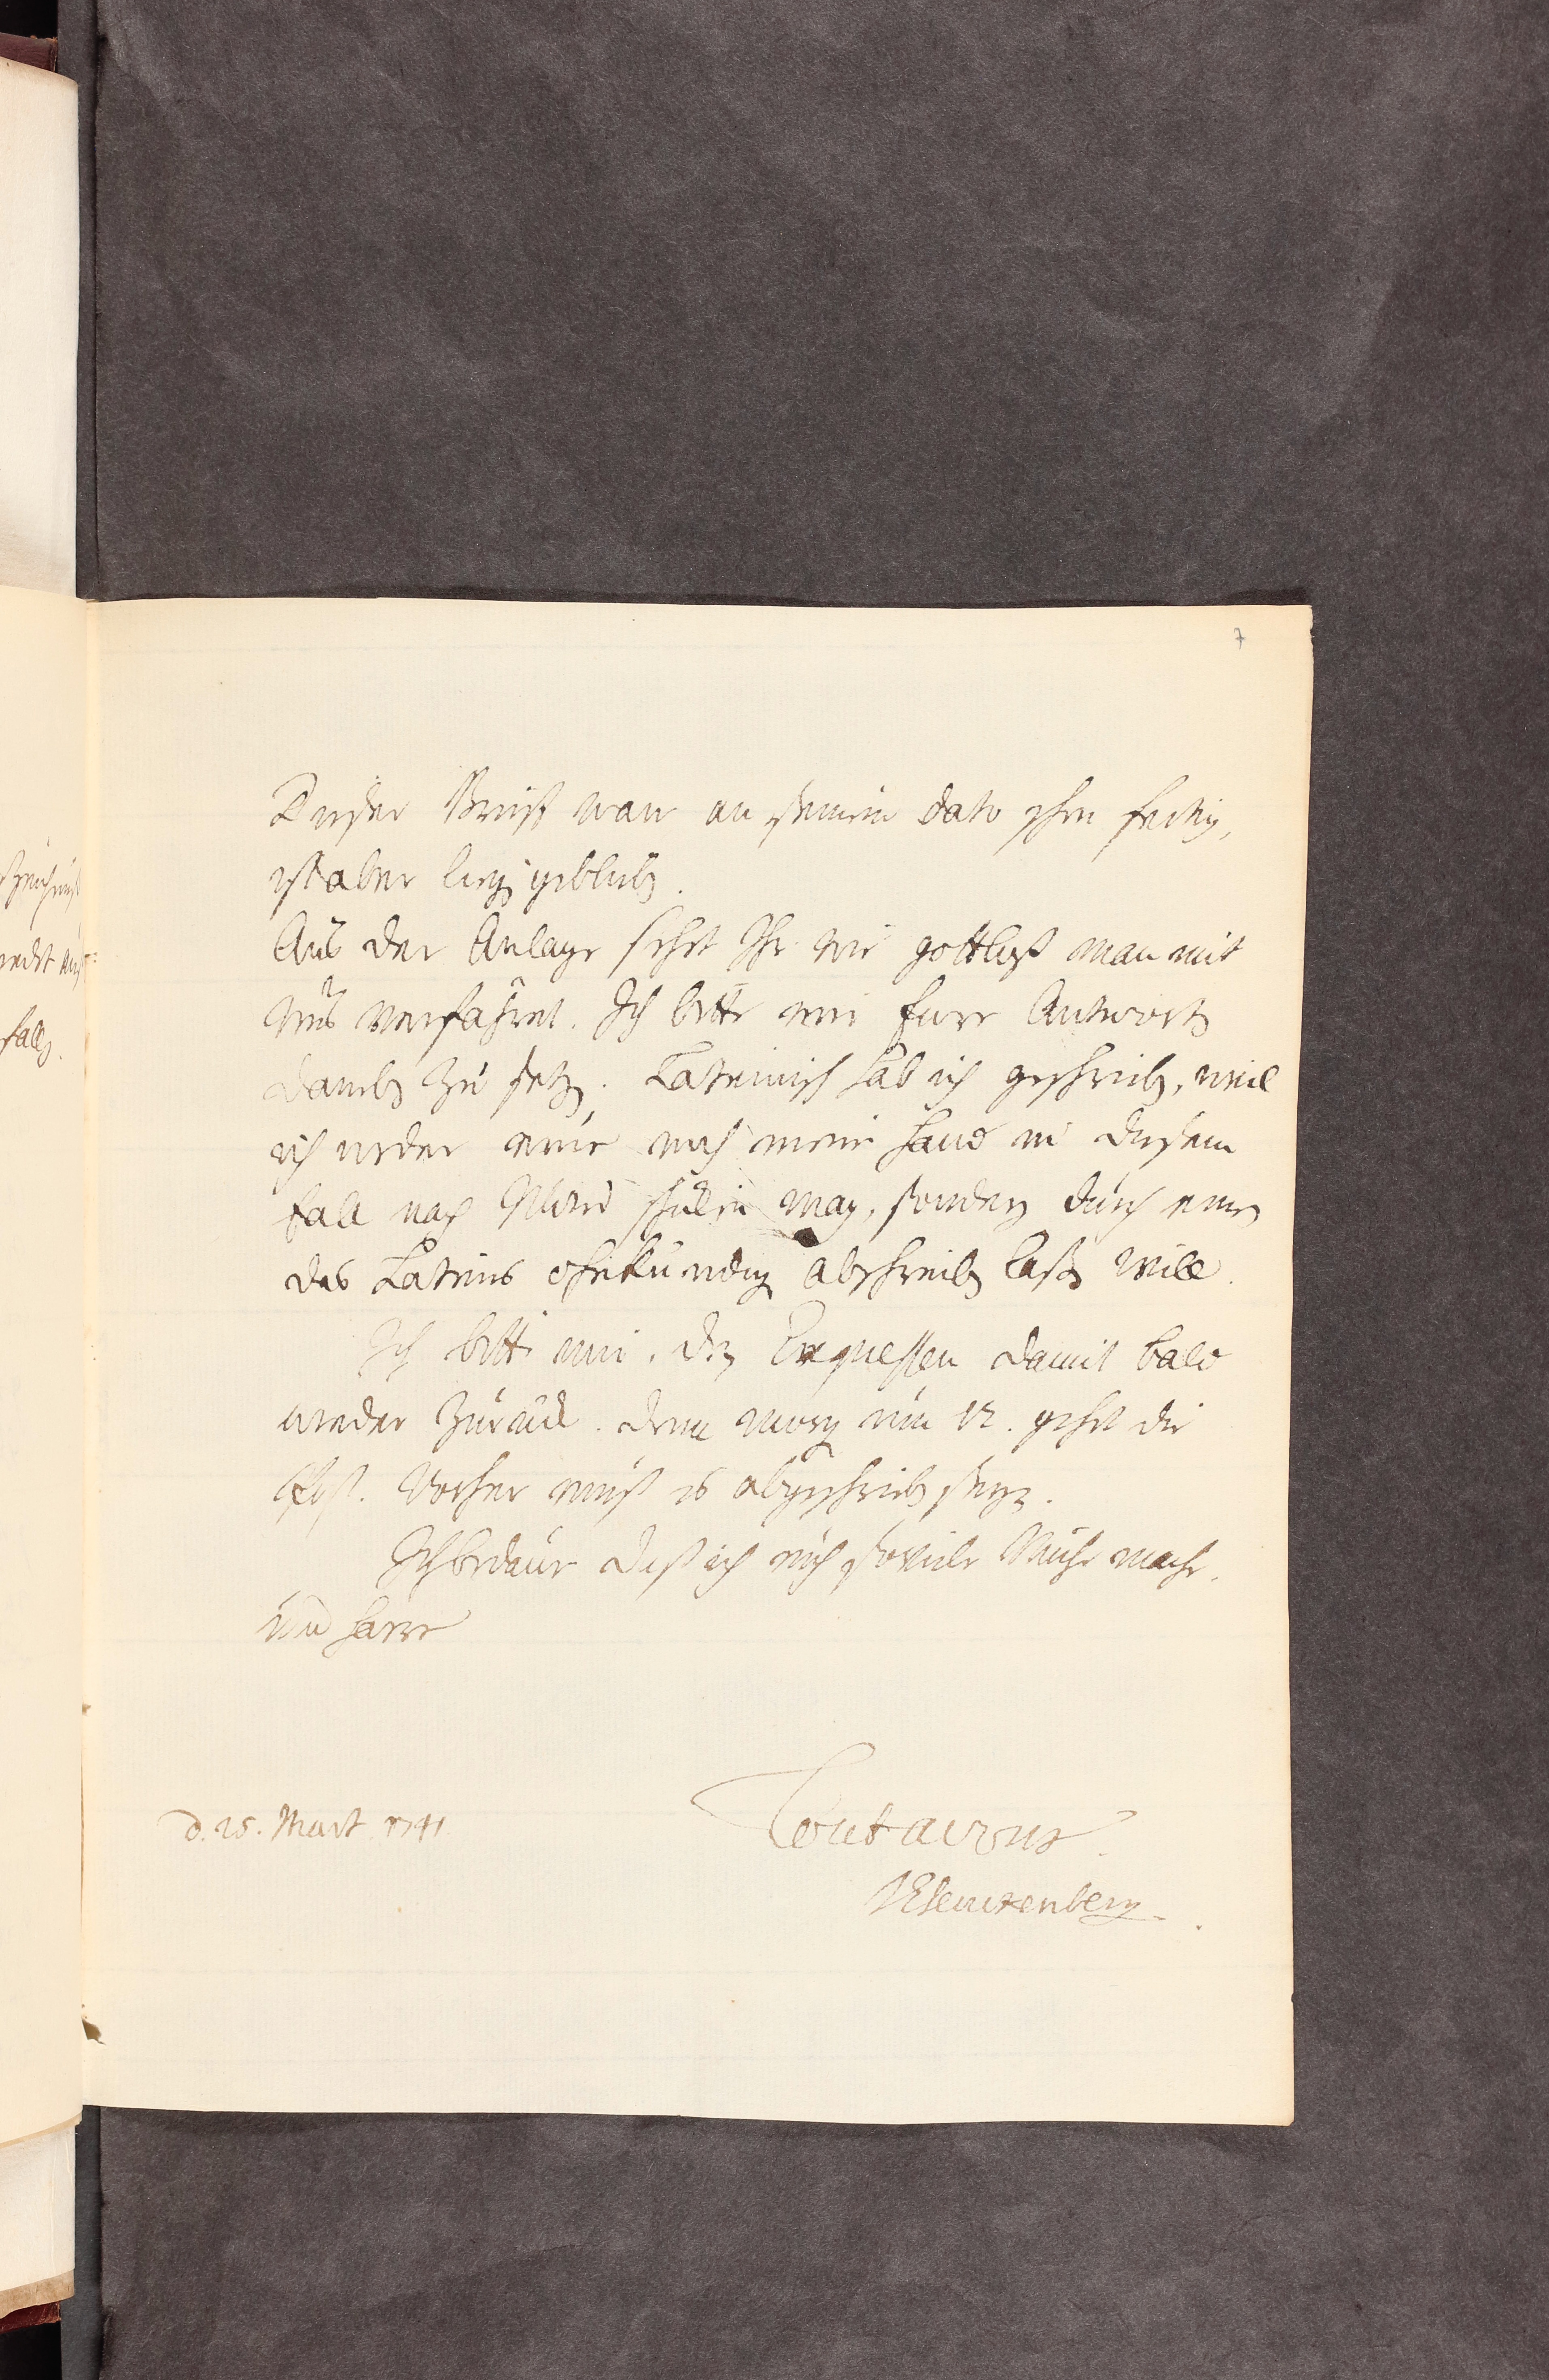 7
Dießer Brieff war an seinem dato schon fertig,
ist aber liegen geblieben.
Aus der Anlage sehet Ihr wie gottloß man mit
uns verfahret. Ich bitte mir Eure Antwort
daneben zu setzen. Lateinisch hab ich geschrieben, weil
ich weder eure noch meine Hand in diesem
fall nach schicken mag, sondern durch einen
des Lateins ohnkundigen abschreiben laßen will.
Ich bitte mir, den Expressen damit bald
wieder zurück. denn morgen um 12. gehet die
Post. Vorher muß es abgeschrieben seyn.
Ich bedaure daß ich euch soviele Mühe mache,
und harre
d. 25. Mart 1741
Tout a vous
RESenckenberg